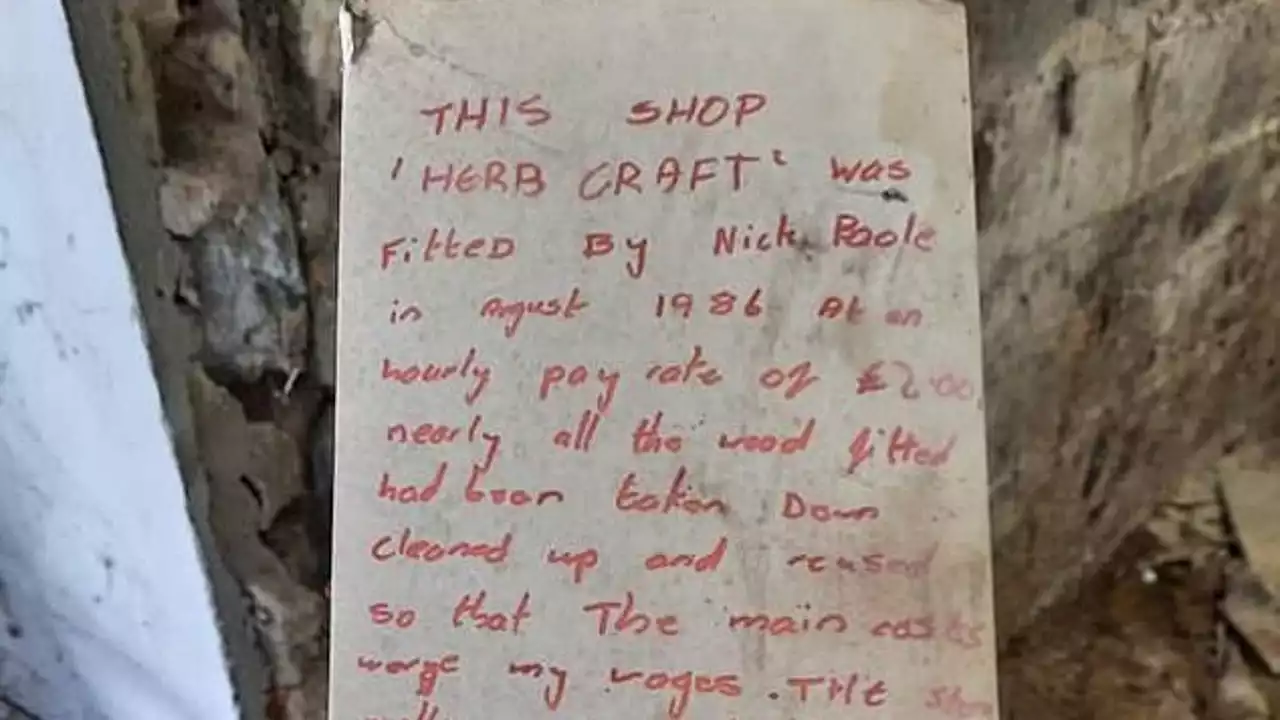 THIS SHOP
'HERB CRAFT' was
Fitted By Nick Poole
in Agust 1986 At an
hourly pay rate of £2.00
nearly all the wood fitted
had been taken Down
cleaned up and reused
so that The main costs
werge my wages. THE